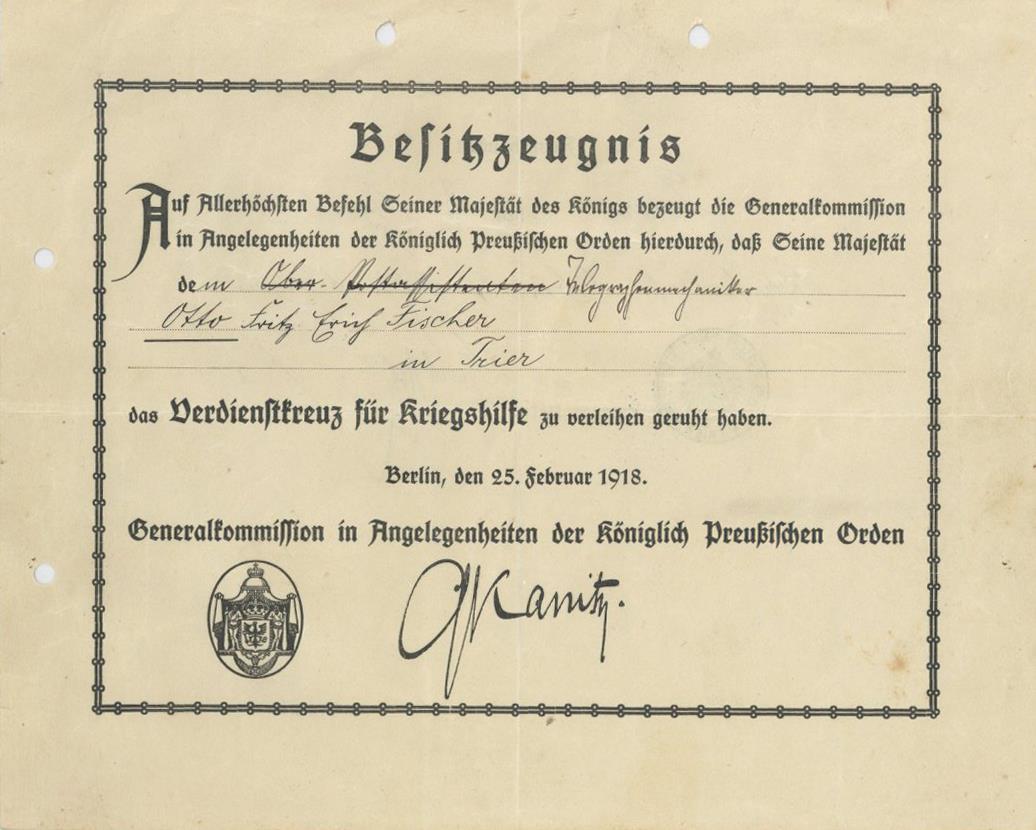 Besitzzeugnis
Auf Allerhöchsten Befehl Seiner Majestät des Königs bezeugt die Generalkommission
in Angelegenheiten der Königlich Preußischen Orden hierdurch, daß Seine Majestät
dem Ober-Postassistenten Telegraphenmechaniker
Otto Fritz Erich Fischer
in Trier
das Verdienstkreuz für Kriegshilfe zu verleihen geruht haben.
Berlin, den 25. Februar 1918.
Generalkommission in Angelegenheiten der Königlich Preußischen Orden
GKanitz.